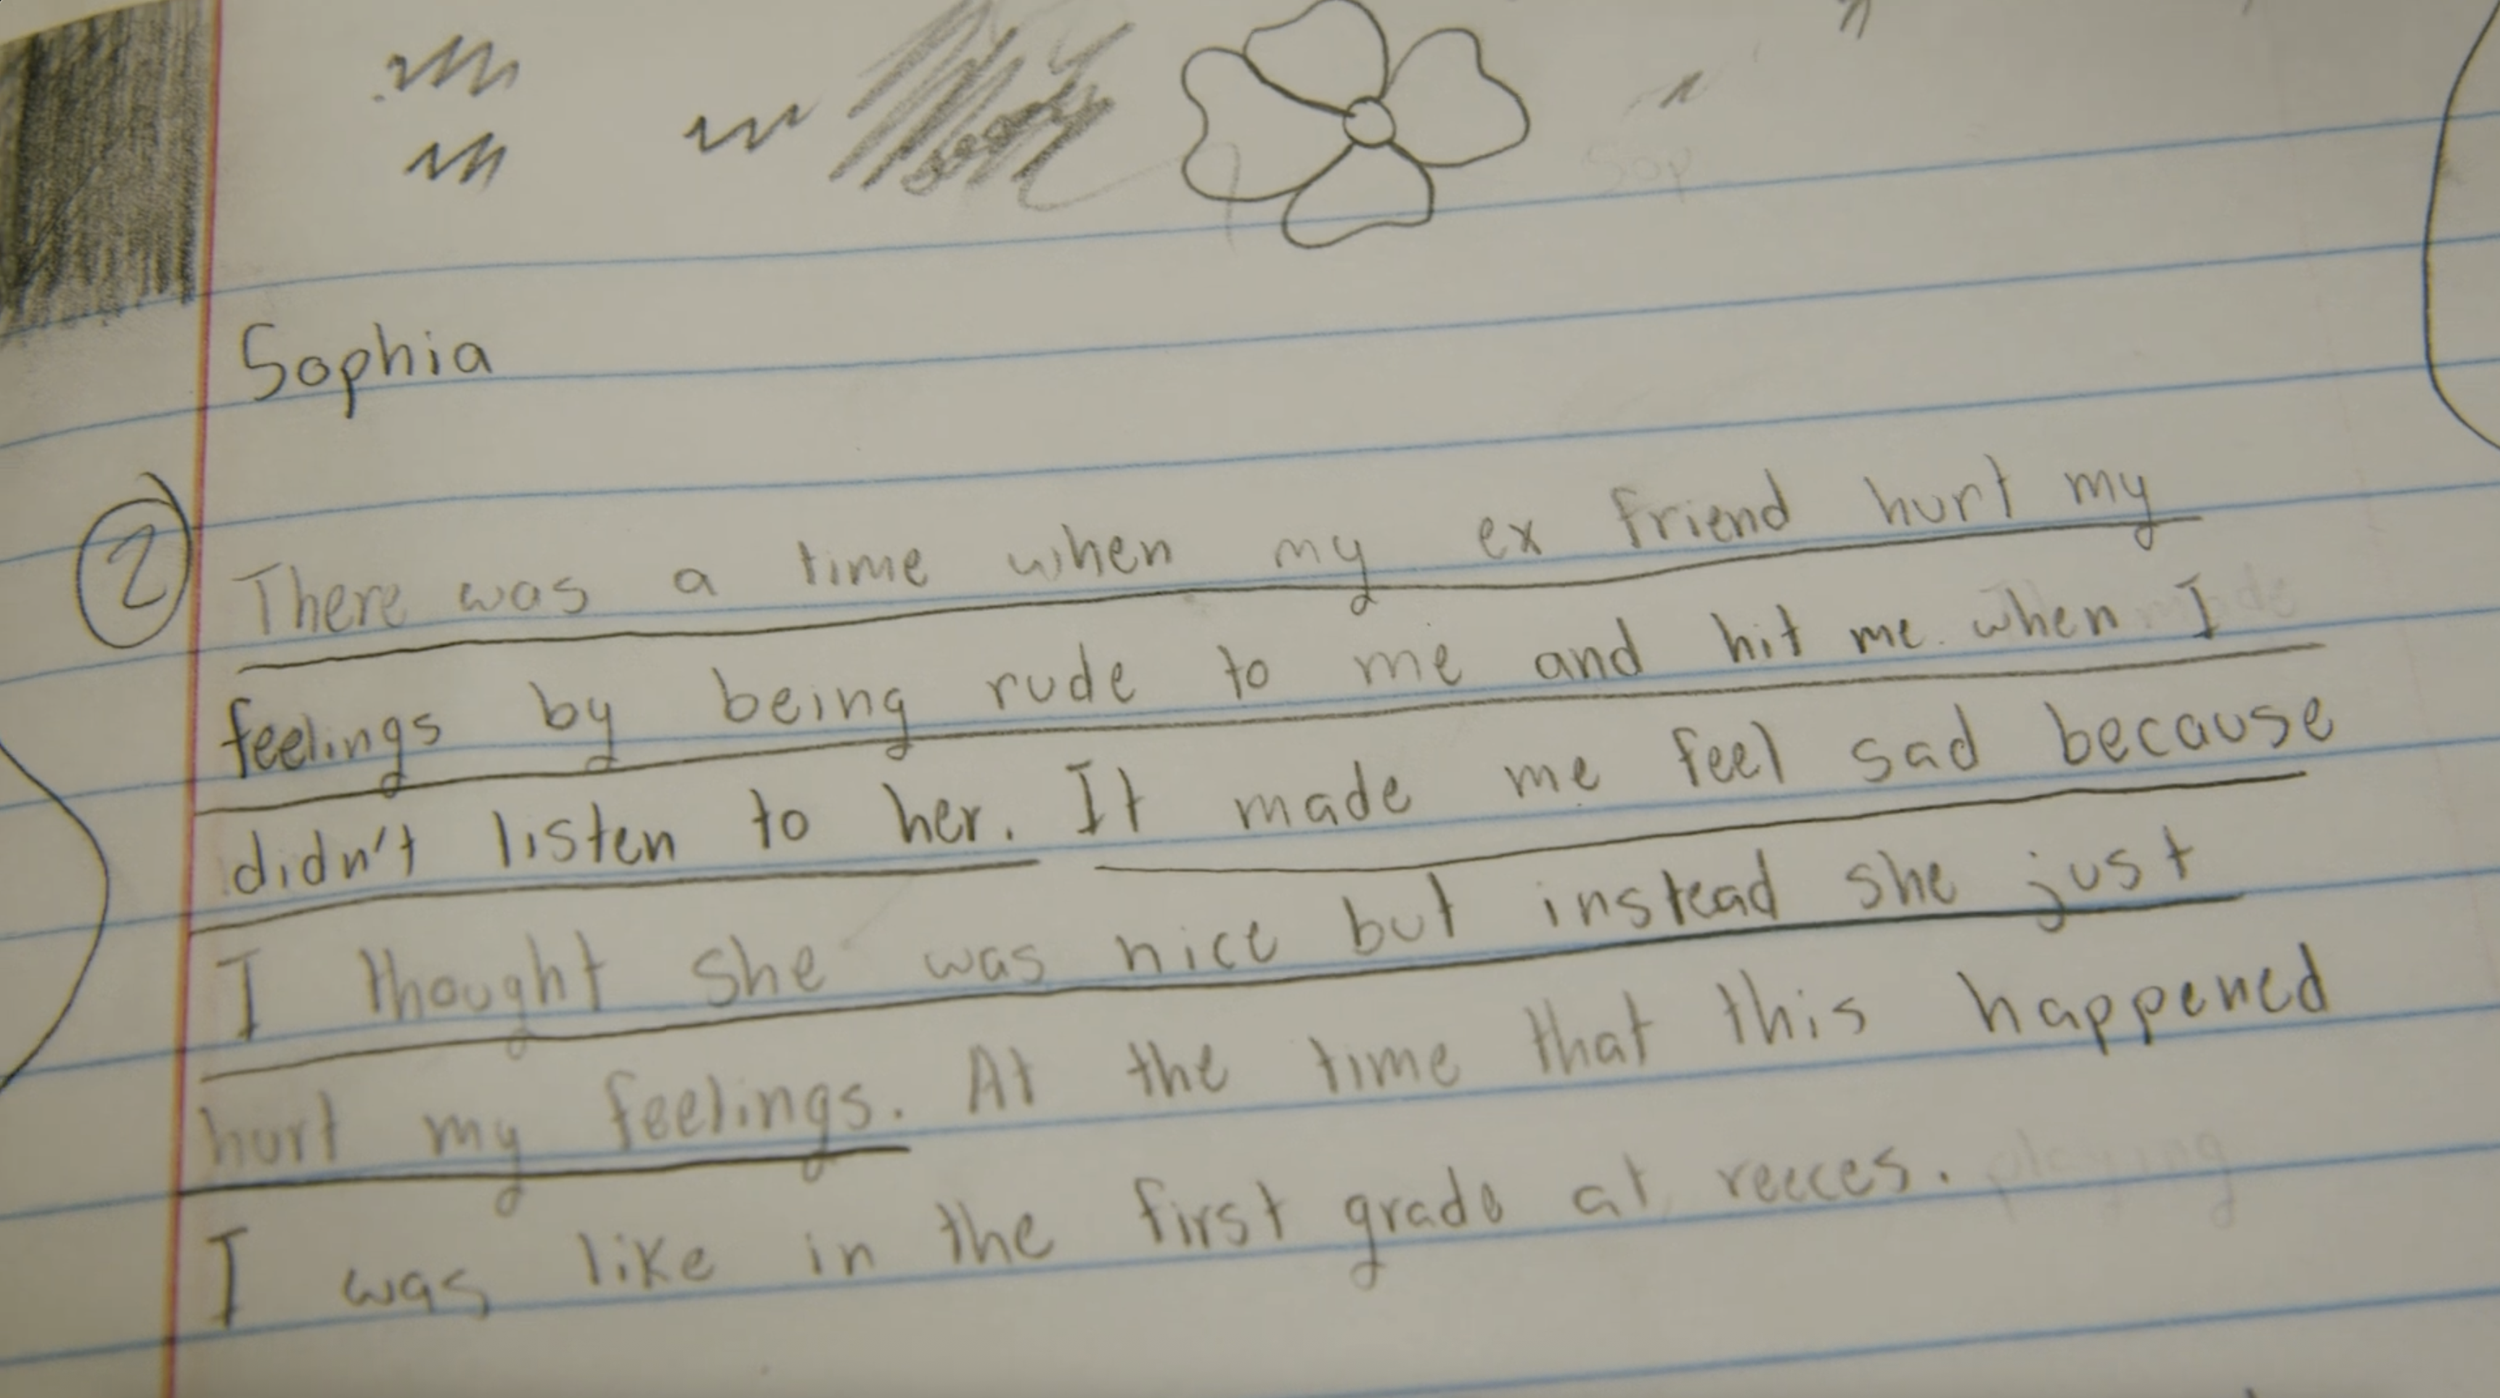 Sophia
2
There was a time when my ex friend hurt my
feelings by being rude to me and hit me when I
didn't listen to her. It made me feel sad because
I thought she was nice but instead she just
hurt my feelings. At the time that this happened
I was like in the first grade at recces.